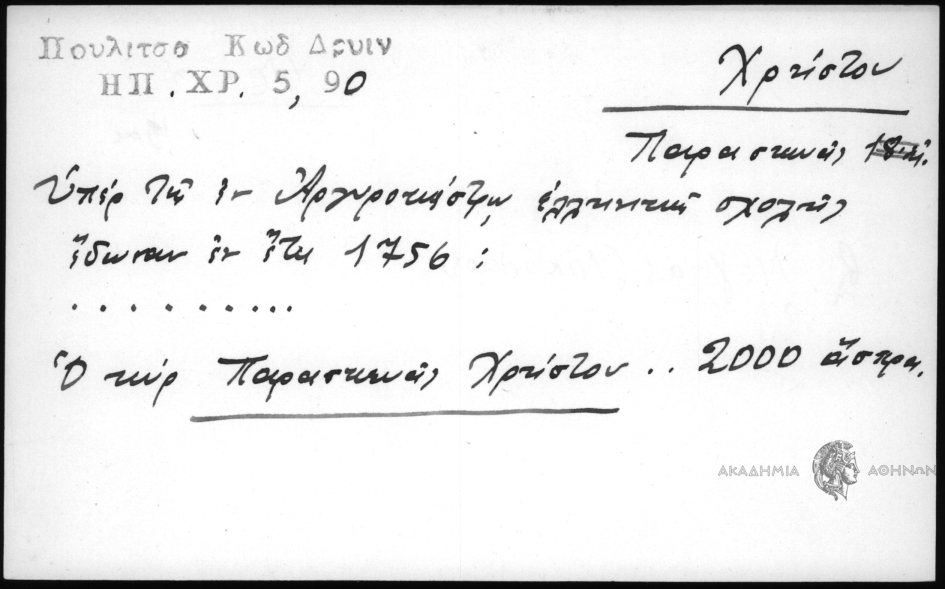 Πουλιτσα Κωδ Δρυιν
ΗΠ. ΧΡ. 5, 90
Χρήστου
Παρασκευᾶς
Ὑπὲρ τῆς ἐν Ἀργυροκάστρῳ ἑλληνικῆς σχολῆς
ἔδωκαν ἐν ἔτει 1756 :
. . . . . . . . . .
Ὁ κὺρ Παρασκευᾶς Χρήστου .. 2000 ἄσπρα.
ΑΚΑΔΗΜΙΑ ΑΘΗΝΩΝ